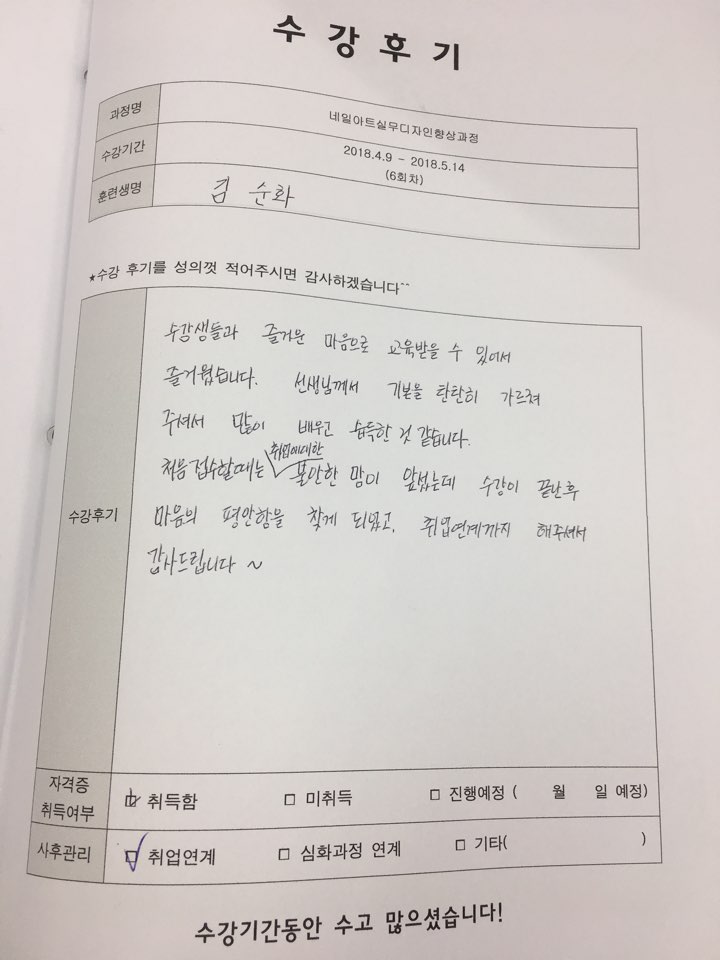 수강후기
과정명 네일아트실무디자인향상과정
수강기간 2018.4.9 - 2018.5.14
(6회차)
훈련생명 김 순화
★수강 후기를 성의껏 적어주시면 감사하겠습니다^^
수강생들과 즐거운 마음으로 교육받을 수 있어서
즐거웠습니다. 선생님께서 기본을 탄탄히 가르쳐
주셔서 많이 배우고 습득한 것 같습니다.
취업에대한
처음 접수할때는 불안한 맘이 앞섰는데 수강이 끝난후
수강후기
마음의 평안함을 찾게 되었고, 취업연계까지 해주셔서
감사드립니다 ~
자격증
취득여부
□ 취득함 □ 미취득 □ 진행예정 ( 월 일 예정)
사후관리 □ 취업연계 □ 심화과정 연계 □ 기타( )
수강기간동안 수고 많으셨습니다!